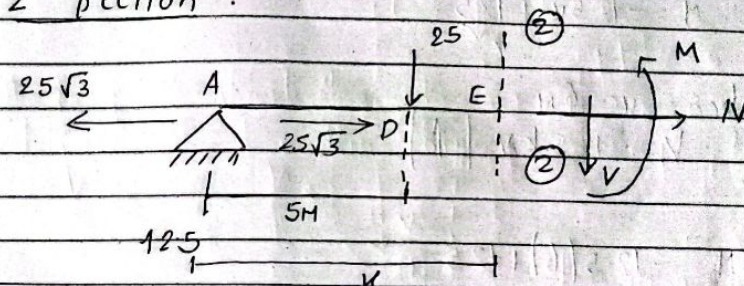 2 section :
25 ②
M
25√3 A E N
25√3 D
② V
5M
12.5
X